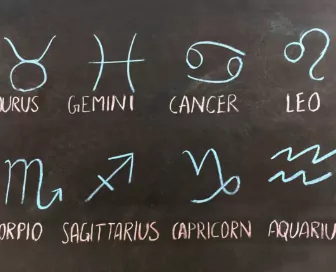 URUS GEMINI CANCER LEO
ORPIO SAGITTARIUS CAPRICORN AQUARIU